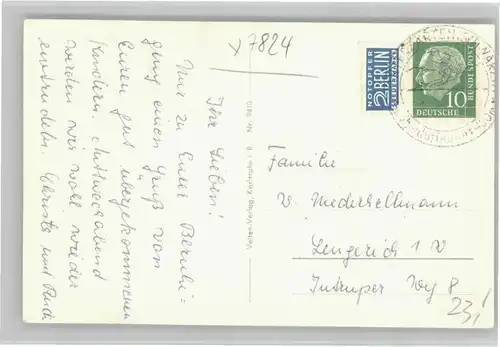 x 7824
Ihr Lieben!
Nur zu Eurer Beruhi=
gung einen Gruß von
Euren gut übergekommenen
Kindern. Mittwochabend
werden wir wohl wieder
eintrudeln. Christa und Rudi
Verlag, Karlsruhe
NOTOPFER
2 BERLIN
STEUERMARKE
10
DEUTSCHE
BUNDESPOST
Familie
v. Niederhellmann
Lengerich i. W
Intruper Weg 8
23,!